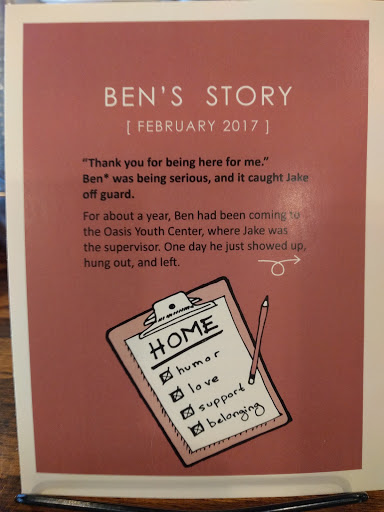 BEN'S STORY
[ FEBRUARY 2017 ]
"Thank you for being here for me."
Ben* was being serious, and it caught Jake
off guard.
For about a year, Ben had been coming to
the Oasis Youth Center, where Jake was
the supervisor. One day he just showed up,
hung out, and left.
HOME
humor
love
support
belonging